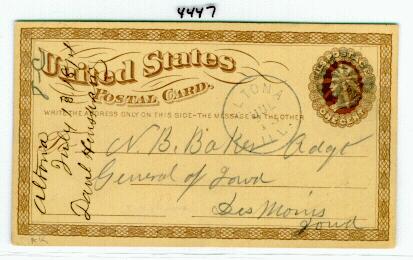 4447
United States
Postal Card.
WRITE THE ADDRESS ONLY ON THIS SIDE - THE MESSAGE ON THE OTHER
ALTONA
JUL
ILL
N. B. Baker Adgt
General of Iowa
Des Moins
Iowa
Altona
July 8